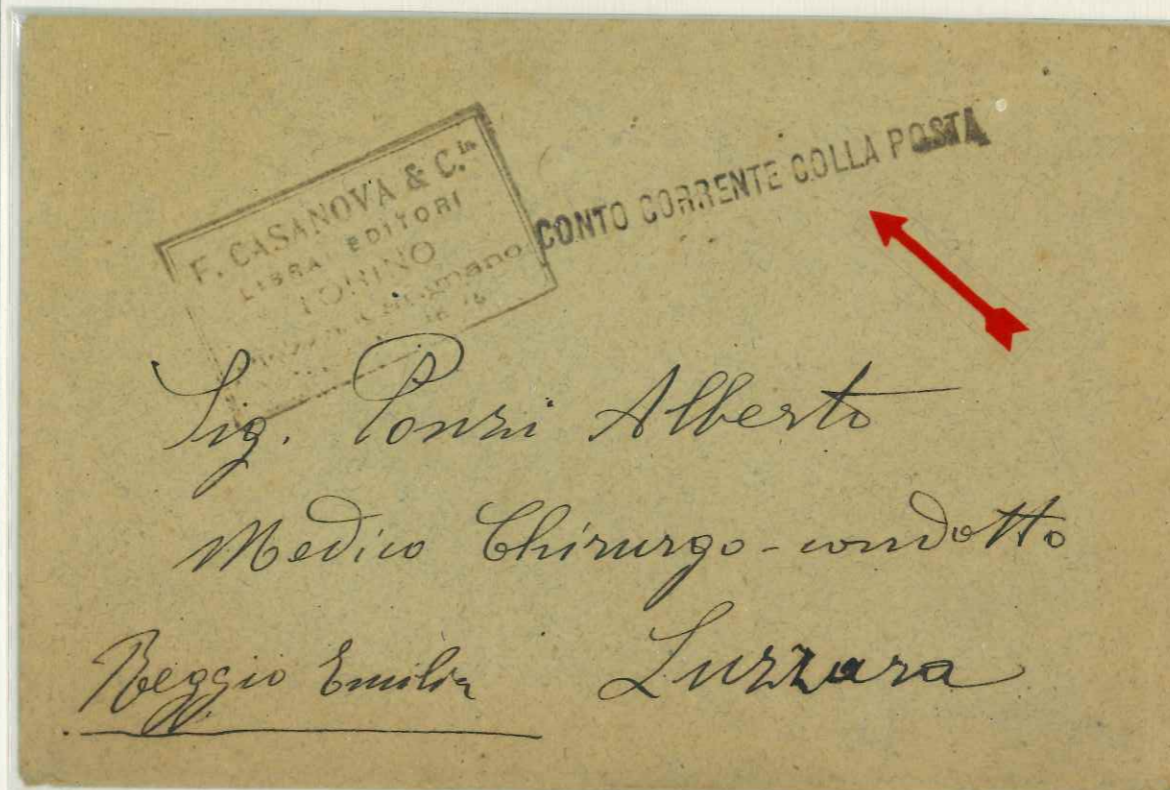 F. CASANOVA & C.ia
LIBRAI EDITORI
TORINO
CONTO CORRENTE COLLA POSTA
Sig. Ponzi Alberto
Medico Chirurgo-condotto
Reggio Emilia
Luzzara